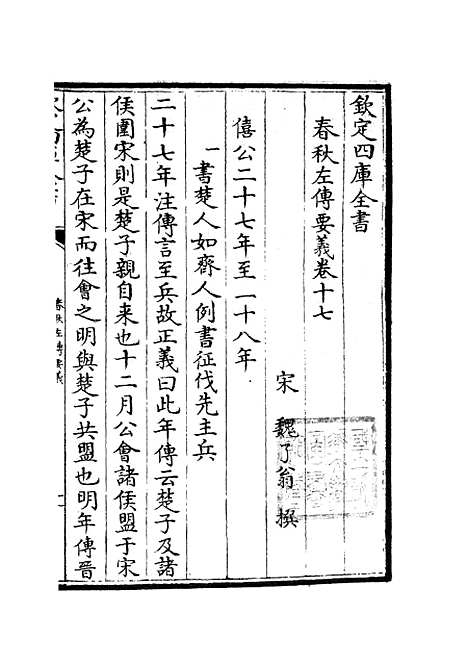 欽定四庫全書
春秋左傳要義卷十七
宋 魏了翁 撰
僖公二十七年至二十八年
一書楚人如齊人例書征伐先主兵
二十七年注傳言至兵故正義曰此年傳云楚子及諸
侯圍宋則是楚子親自來也十二月公會諸侯盟于宋
公為楚子在宋而往會之明與楚子共盟也明年傳晉
春秋左傳要義